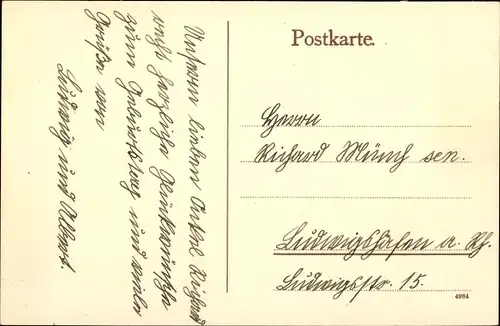 Unserem lieben Onkel Richard
recht herzliche Glückwünsche
zum Geburtstag und viele
Grüße von
Ludwig und Albert.
Postkarte.
Herrn
Richard Münch sen.
Ludwigshafen a. Rh.
Ludwigsstr. 15.
4984